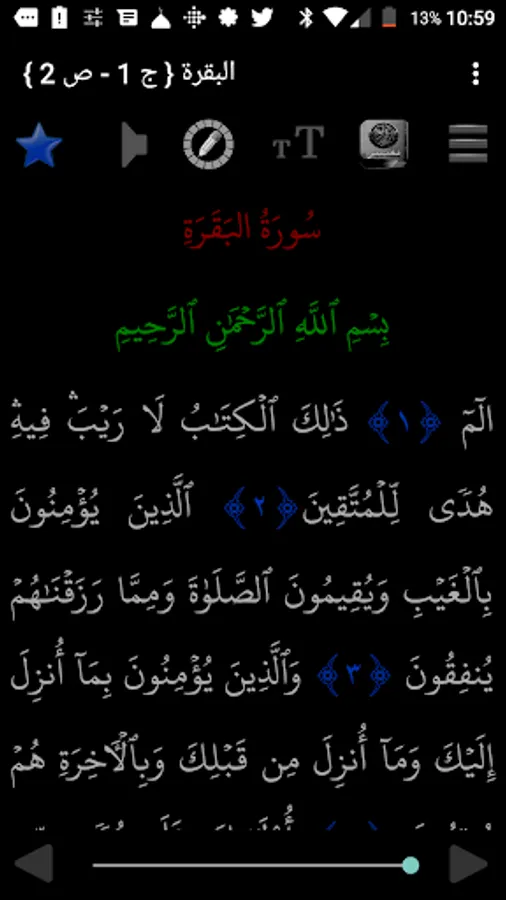 13% 10:59
البقرة { ج 1 - ص 2 }
TT
سُورَةُ البَقَرَةِ
بِسْمِ ٱللَّهِ ٱلرَّحْمَٰنِ ٱلرَّحِيمِ
الٓمٓ ﴿١﴾ ذَٰلِكَ ٱلْكِتَـٰبُ لَا رَيْبَ ۛ فِيهِ ۛ
هُدًى لِّلْمُتَّقِينَ ﴿٢﴾ ٱلَّذِينَ يُؤْمِنُونَ
بِٱلْغَيْبِ وَيُقِيمُونَ ٱلصَّلَوٰةَ وَمِمَّا رَزَقْنَـٰهُمْ
يُنفِقُونَ ﴿٣﴾ وَٱلَّذِينَ يُؤْمِنُونَ بِمَآ أُنزِلَ
إِلَيْكَ وَمَآ أُنزِلَ مِن قَبْلِكَ وَبِٱلْـَٔاخِرَةِ هُمْ